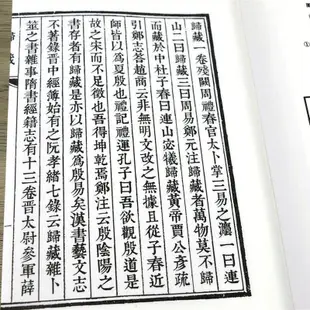 歸藏一卷殘闕周禮春官太卜掌三易之灋一曰連
山二曰歸藏三曰周易鄭元注歸藏者萬物莫不歸
而藏於中杜子春云連山宓犧歸藏黃帝賈公彥疏
引鄭志答趙商云非無明文改之無據且從子春近
師皆以爲夏殷也禮記禮運孔子曰吾欲觀殷道是
故之宋而不足徵也吾得坤乾焉鄭注云殷陰陽之
書存者有歸藏是亦以歸藏爲殷易矣漢書藝文志
不著錄晉中經簿始有之阮孝緒七錄云歸藏雜卜
筮之書雜事隋書經籍志有十三卷晉太尉參軍薛